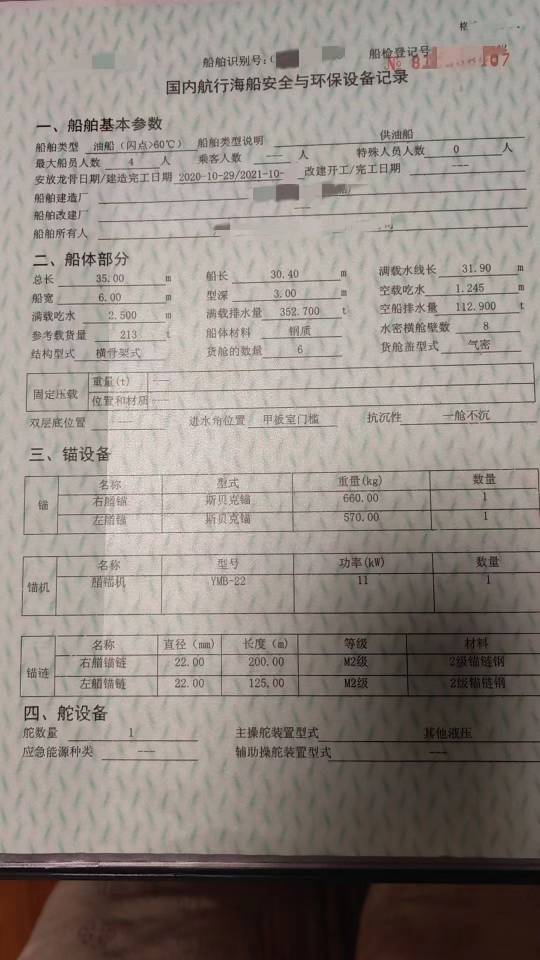 格
船舶识别号:
船检登记号
№ 8 07
国内航行海船安全与环保设备记录
一、船舶基本参数
船舶类型 油船（闪点>60℃） 船舶类型说明 供油船
最大船员人数 4 人 乘客人数 --- 人 特殊人员人数 0 人
安放龙骨日期/建造完工日期 2020-10-29/2021-10- 改建开工/完工日期 ---
船舶建造厂
船舶改建厂 ---
船舶所有人
二、船体部分
总长 35.00 m 船长 30.40 m 满载水线长 31.90 m
船宽 6.00 m 型深 3.00 m 空载吃水 1.245 m
满载吃水 2.500 m 满载排水量 352.700 t 空船排水量 112.900 t
参考载货量 213 t 船体材料 钢质 水密横舱壁数 8
结构型式 横骨架式 货舱的数量 6 货舱盖型式 气密
固定压载 重量(t) ---
位置和材质 ---
双层底位置 --- 进水角位置 甲板室门槛 抗沉性 一舱不沉
三、锚设备
锚 名称 型式 重量(kg) 数量
右艏锚 斯贝克锚 660.00 1
左艏锚 斯贝克锚 570.00 1
锚机 名称 型号 功率(kW) 数量
艏锚机 YMB-22 11 1
锚链 名称 直径（mm） 长度（m） 等级 材料
右艏锚链 22.00 200.00 M2级 2级锚链钢
左艏锚链 22.00 125.00 M2级 2级锚链钢
四、舵设备
舵数量 1 主操舵装置型式 其他液压
应急能源种类 --- 辅助操舵装置型式 ---